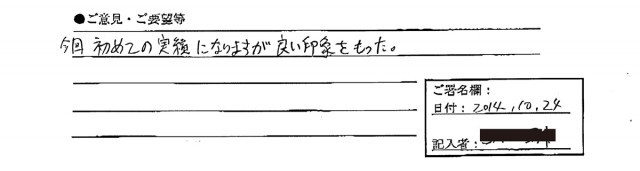 ●ご意見・ご要望等
今回 初めての実績になりますが良い印象をもった。
ご署名欄：
日付：2014.10.24
記入者：